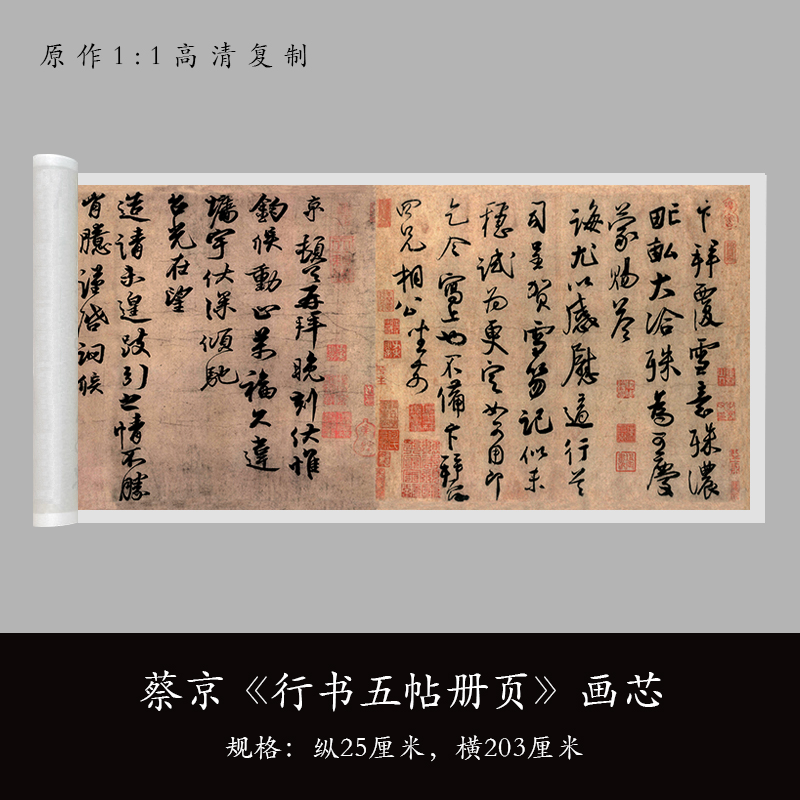 原作1:1高清复制
卞拜覆雪意殊濃
畎畝大洽殊為可慶
蒙賜答
誨尤以感慰適行首
司呈賀雪笏記似未
穩試為更定如可用即
乞令寫上也不備卞拜覆
四兄相公坐前
京頓首再拜晚刻伏惟
鈞候動止萬福久違
牆宇伏深傾馳
台光在望
造請未遑跂引之情不勝
胷臆謹啟詗候
蔡京《行书五帖册页》画芯
规格：纵25厘米，横203厘米